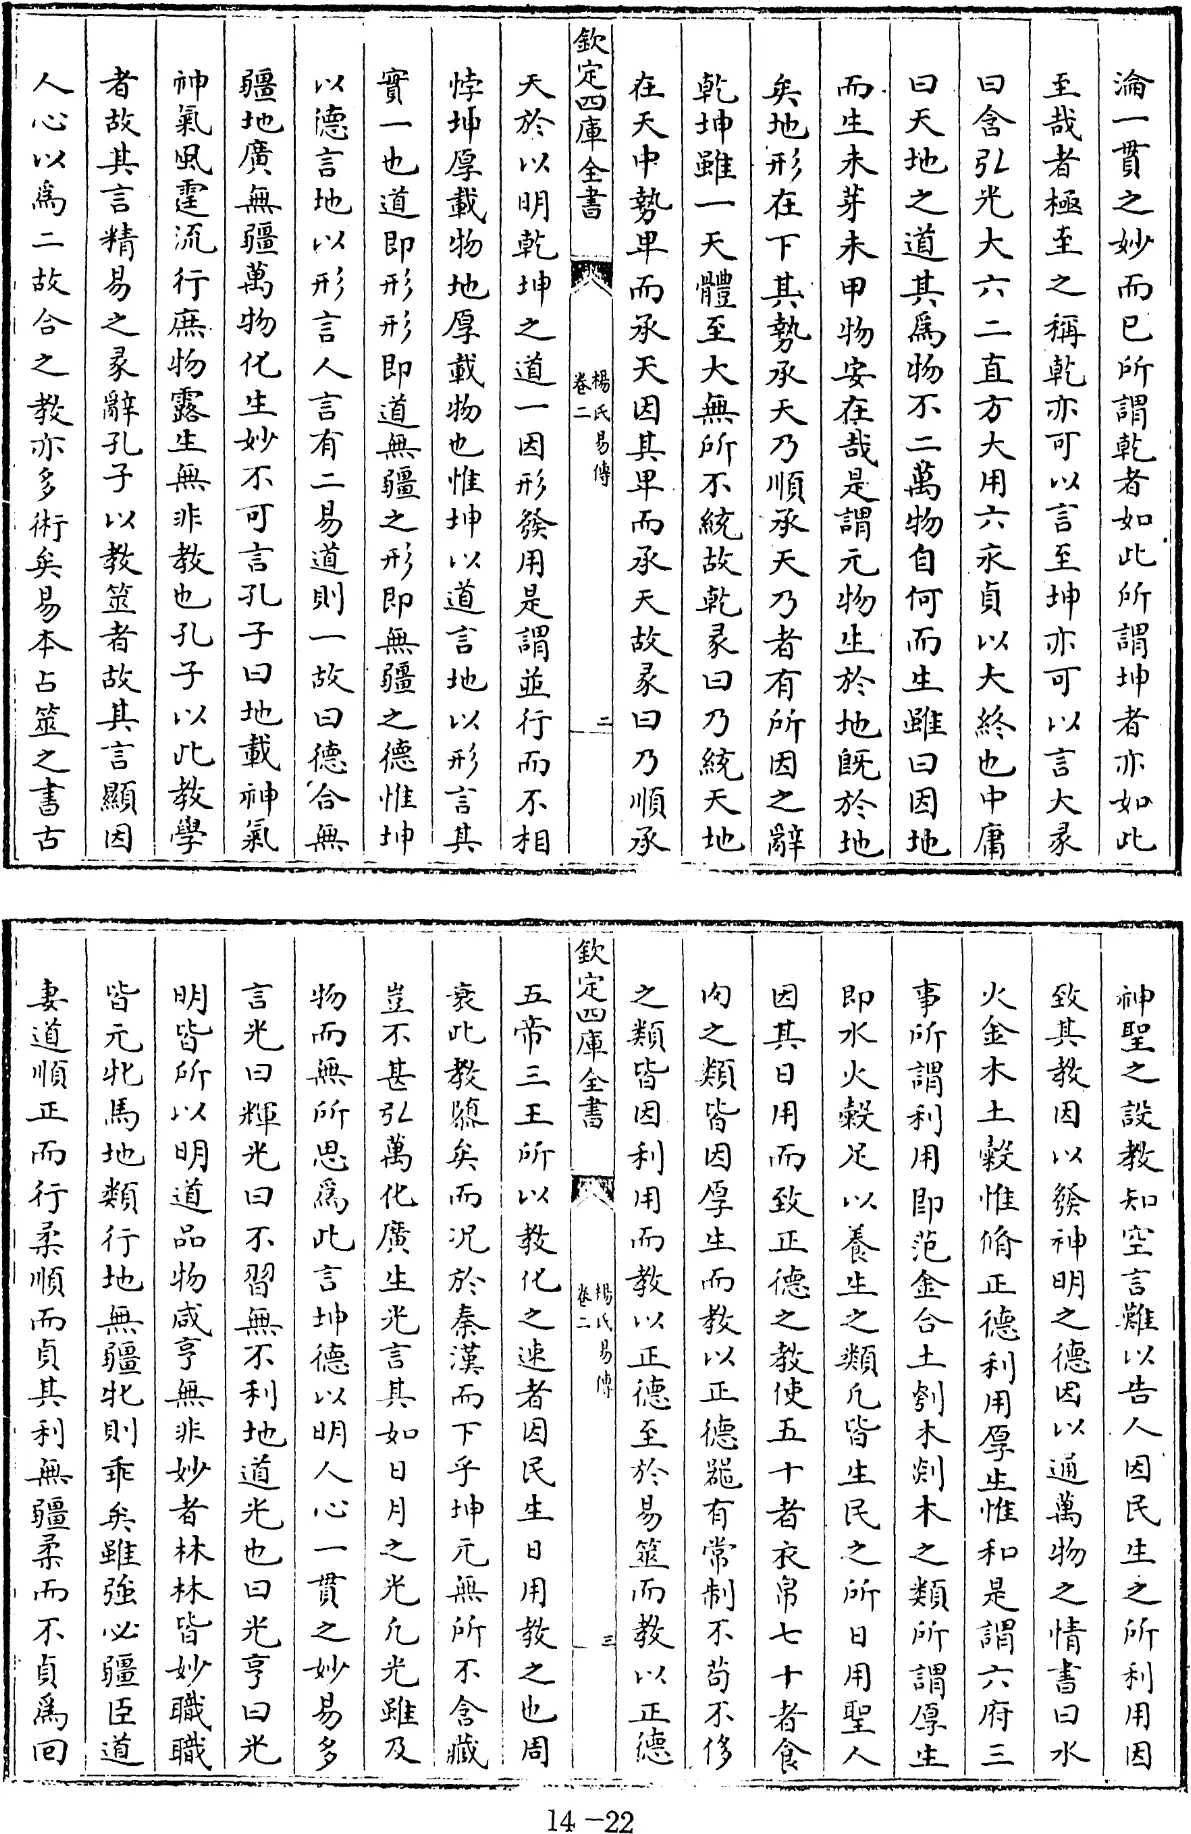 淪一貫之妙而已所謂乾者如此所謂坤者亦如此
至哉者極至之稱乾亦可以言至坤亦可以言大彖
曰含弘光大六二直方大用六永貞以大終也中庸
曰天地之道其爲物不二萬物自何而生雖曰因地
而生未芽未甲物安在哉是謂元物生於地旣於地
矣地形在下其勢承天乃順承天乃者有所因之辭
乾坤雖一天體至大無所不統故乾彖曰乃統天地
在天中勢卑而承天因其卑而承天故彖曰乃順承
欽定四庫全書
楊氏易傳
卷二
二
天於以明乾坤之道一因形發用是謂並行而不相
悖坤厚載物地厚載物也惟坤以道言地以形言其
實一也道即形形即道無疆之形即無疆之德惟坤
以德言地以形言人言有二易道則一故曰德合無
疆地廣無疆萬物化生妙不可言孔子曰地載神氣
神氣風霆流行庶物露生無非教也孔子以此教學
者故其言精易之彖辭孔子以教筮者故其言顯因
人心以爲二故合之教亦多術矣易本占筮之書古
神聖之設教知空言難以告人因民生之所利用因
致其教因以發神明之德因以通萬物之情書曰水
火金木土穀惟脩正德利用厚生惟和是謂六府三
事所謂利用即范金合土刳木剡木之類所謂厚生
即水火穀足以養生之類凡皆生民之所日用聖人
因其日用而致正德之教使五十者衣帛七十者食
肉之類皆因厚生而教以正德器有常制不苟不侈
之類皆因利用而教以正德至於易筮而教以正德
欽定四庫全書
楊氏易傳
卷二
三
五帝三王所以教化之速者因民生日用教之也周
衰此教隳矣而况於秦漢而下乎坤元無所不含藏
豈不甚弘萬化廣生光言其如日月之光凡光雖及
物而無所思爲此言坤德以明人心一貫之妙易多
言光曰輝光曰不習無不利地道光也曰光亨曰光
明皆所以明道品物咸亨無非妙者林林皆妙職職
皆元牝馬地類行地無疆牝則乖矣雖強必疆臣道
妻道順正而行柔順而貞其利無疆柔而不貞爲回
14-22